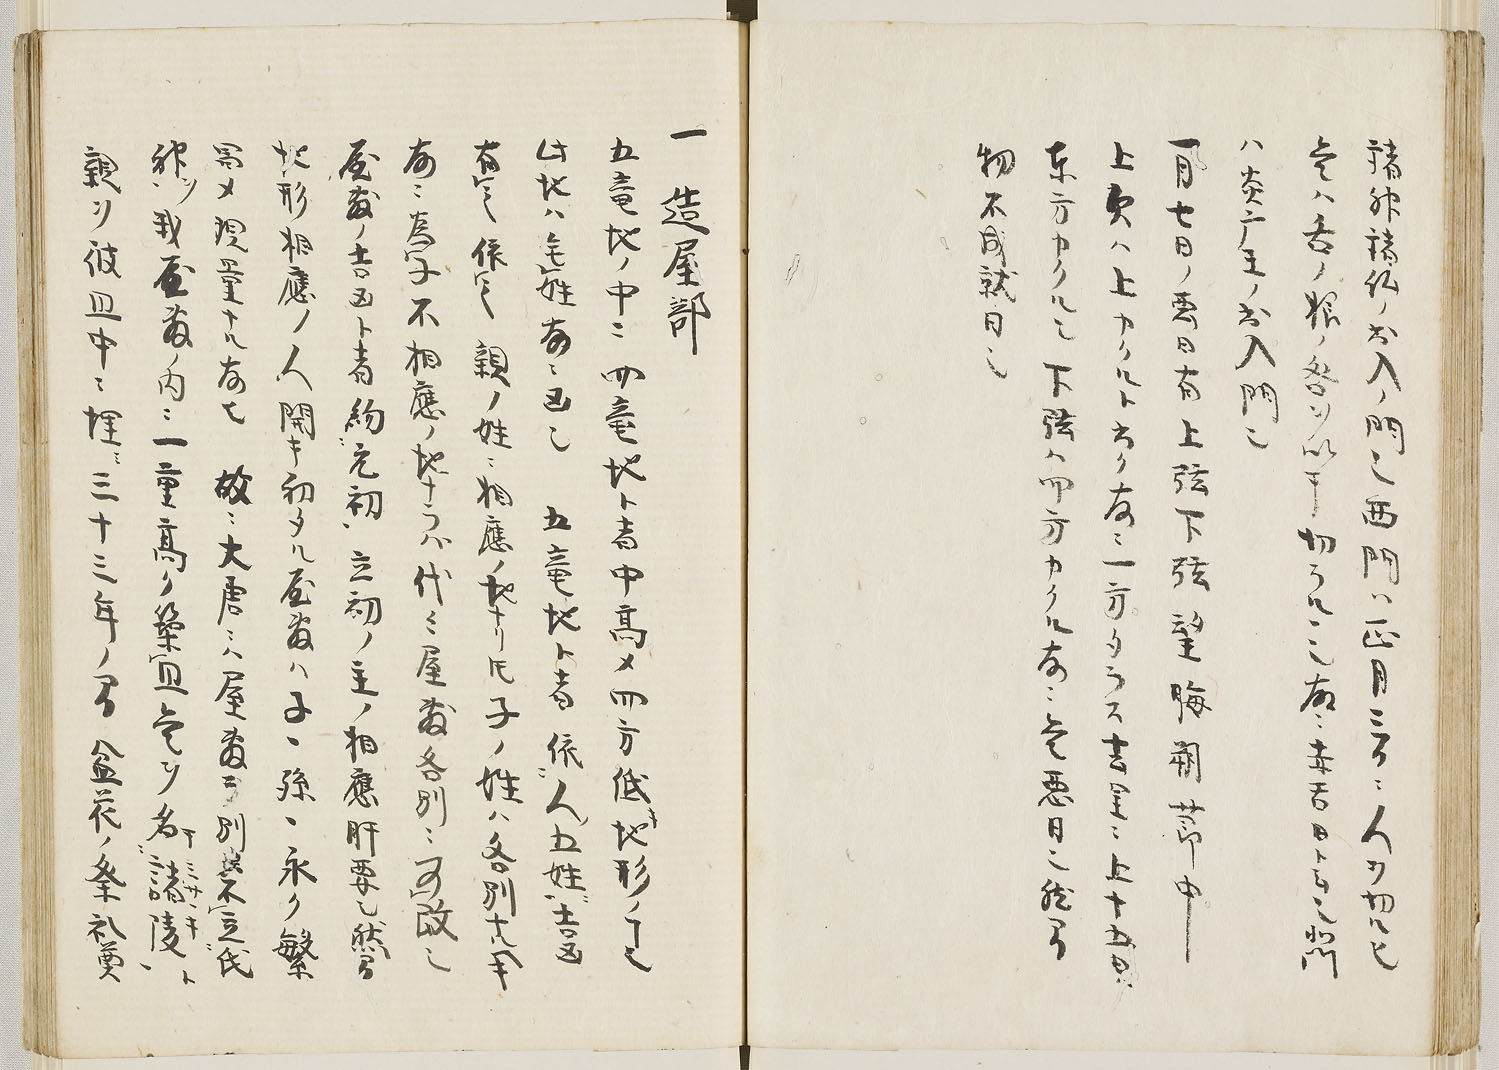 諸神諸仏ノ出入ノ門也西門ハ正月三日ニ人ヲ切ル也
是ハ舌ノ根ノ咎ヲ以テ切ラルヽ也故ニ赤舌日ト云也北門
ハ炎广王ノ出入門也
一月七日ノ悪日有上弦下弦望晦朔節中
上矢ハ上カクルト書ク故ニ一方タラス
東方カクル也下弦ハ四方カクル故ニ是悪日也然間
物不成就日也
一 造屋部
五竜地ノ中ニ四竜地ト者中高メ四方低キ地形ノ事也
此地ハ宅姓故ニ凶也 五竜地ト者依人五姓ニ吉凶
有之依之親ノ姓ニ相應ノ地ナリ圧子ノ姓ハ各別ナルヘキ
故ニ為子不相應ノ地ナラハ代々屋敷各別ニ可改也
屋敷ノ吉凶ト者約元初ニ立初ノ主ノ相應肝要也然間
地形相應ノ人開キ初タル屋敷ハ子々孫々永ク繁
昌メ現量ナル故也 故ニ大唐ニハ屋敷ヲ別不定氏
神ヲ我屋敷ノ内ニ一重高ク築皿是ヲ名諸陵ト
親ヲ彼皿中ニ埋ニ三十三年ノ間盆花ノ祭礼奠